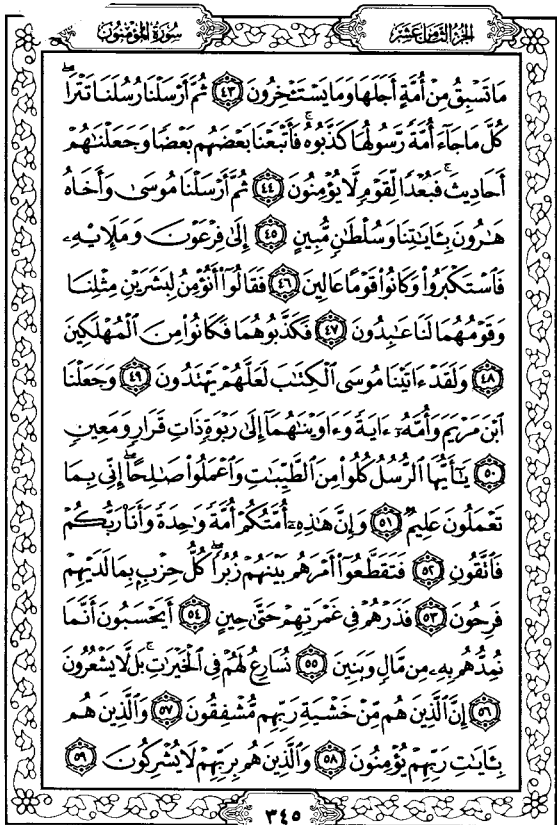 سُورَةُ المُؤْمِنُون
الجزء الثامن عشر
مَا تَسْبِقُ مِنْ أُمَّةٍ أَجَلَهَا وَمَا يَسْتَـْٔخِرُونَ ٤٣ ثُمَّ أَرْسَلْنَا رُسُلَنَا تَتْرَا ۖ
كُلَّ مَا جَآءَ أُمَّةً رَّسُولُهَا كَذَّبُوهُ ۚ فَأَتْبَعْنَا بَعْضَهُم بَعْضًا وَجَعَلْنَٰهُمْ
أَحَادِيثَ ۚ فَبُعْدًا لِّقَوْمٍ لَّا يُؤْمِنُونَ ٤٤ ثُمَّ أَرْسَلْنَا مُوسَىٰ وَأَخَاهُ
هَٰرُونَ بِـَٔايَٰتِنَا وَسُلْطَٰنٍ مُّبِينٍ ٤٥ إِلَىٰ فِرْعَوْنَ وَمَلَإِي۟هِۦ
فَٱسْتَكْبَرُوا۟ وَكَانُوا۟ قَوْمًا عَالِينَ ٤٦ فَقَالُوٓا۟ أَنُؤْمِنُ لِبَشَرَيْنِ مِثْلِنَا
وَقَوْمُهُمَا لَنَا عَٰبِدُونَ ٤٧ فَكَذَّبُوهُمَا فَكَانُوا۟ مِنَ ٱلْمُهْلَكِينَ
٤٨ وَلَقَدْ ءَاتَيْنَا مُوسَى ٱلْكِتَٰبَ لَعَلَّهُمْ يَهْتَدُونَ ٤٩ وَجَعَلْنَا
ٱبْنَ مَرْيَمَ وَأُمَّهُۥٓ ءَايَةً وَءَاوَيْنَٰهُمَآ إِلَىٰ رَبْوَةٍ ذَاتِ قَرَارٍ وَمَعِينٍ
٥٠ يَٰٓأَيُّهَا ٱلرُّسُلُ كُلُوا۟ مِنَ ٱلطَّيِّبَٰتِ وَٱعْمَلُوا۟ صَٰلِحًا ۖ إِنِّى بِمَا
تَعْمَلُونَ عَلِيمٌ ٥١ وَإِنَّ هَٰذِهِۦٓ أُمَّتُكُمْ أُمَّةً وَٰحِدَةً وَأَنَا۠ رَبُّكُمْ
فَٱتَّقُونِ ٥٢ فَتَقَطَّعُوٓا۟ أَمْرَهُم بَيْنَهُمْ زُبُرًا ۖ كُلُّ حِزْبٍۭ بِمَا لَدَيْهِمْ
فَرِحُونَ ٥٣ فَذَرْهُمْ فِى غَمْرَتِهِمْ حَتَّىٰ حِينٍ ٥٤ أَيَحْسَبُونَ أَنَّمَا
نُمِدُّهُم بِهِۦ مِن مَّالٍ وَبَنِينَ ٥٥ نُسَارِعُ لَهُمْ فِى ٱلْخَيْرَٰتِ ۚ بَل لَّا يَشْعُرُونَ
٥٦ إِنَّ ٱلَّذِينَ هُم مِّنْ خَشْيَةِ رَبِّهِم مُّشْفِقُونَ ٥٧ وَٱلَّذِينَ هُم
بِـَٔايَٰتِ رَبِّهِمْ يُؤْمِنُونَ ٥٨ وَٱلَّذِينَ هُم بِرَبِّهِمْ لَا يُشْرِكُونَ ٥٩
٣٤٥